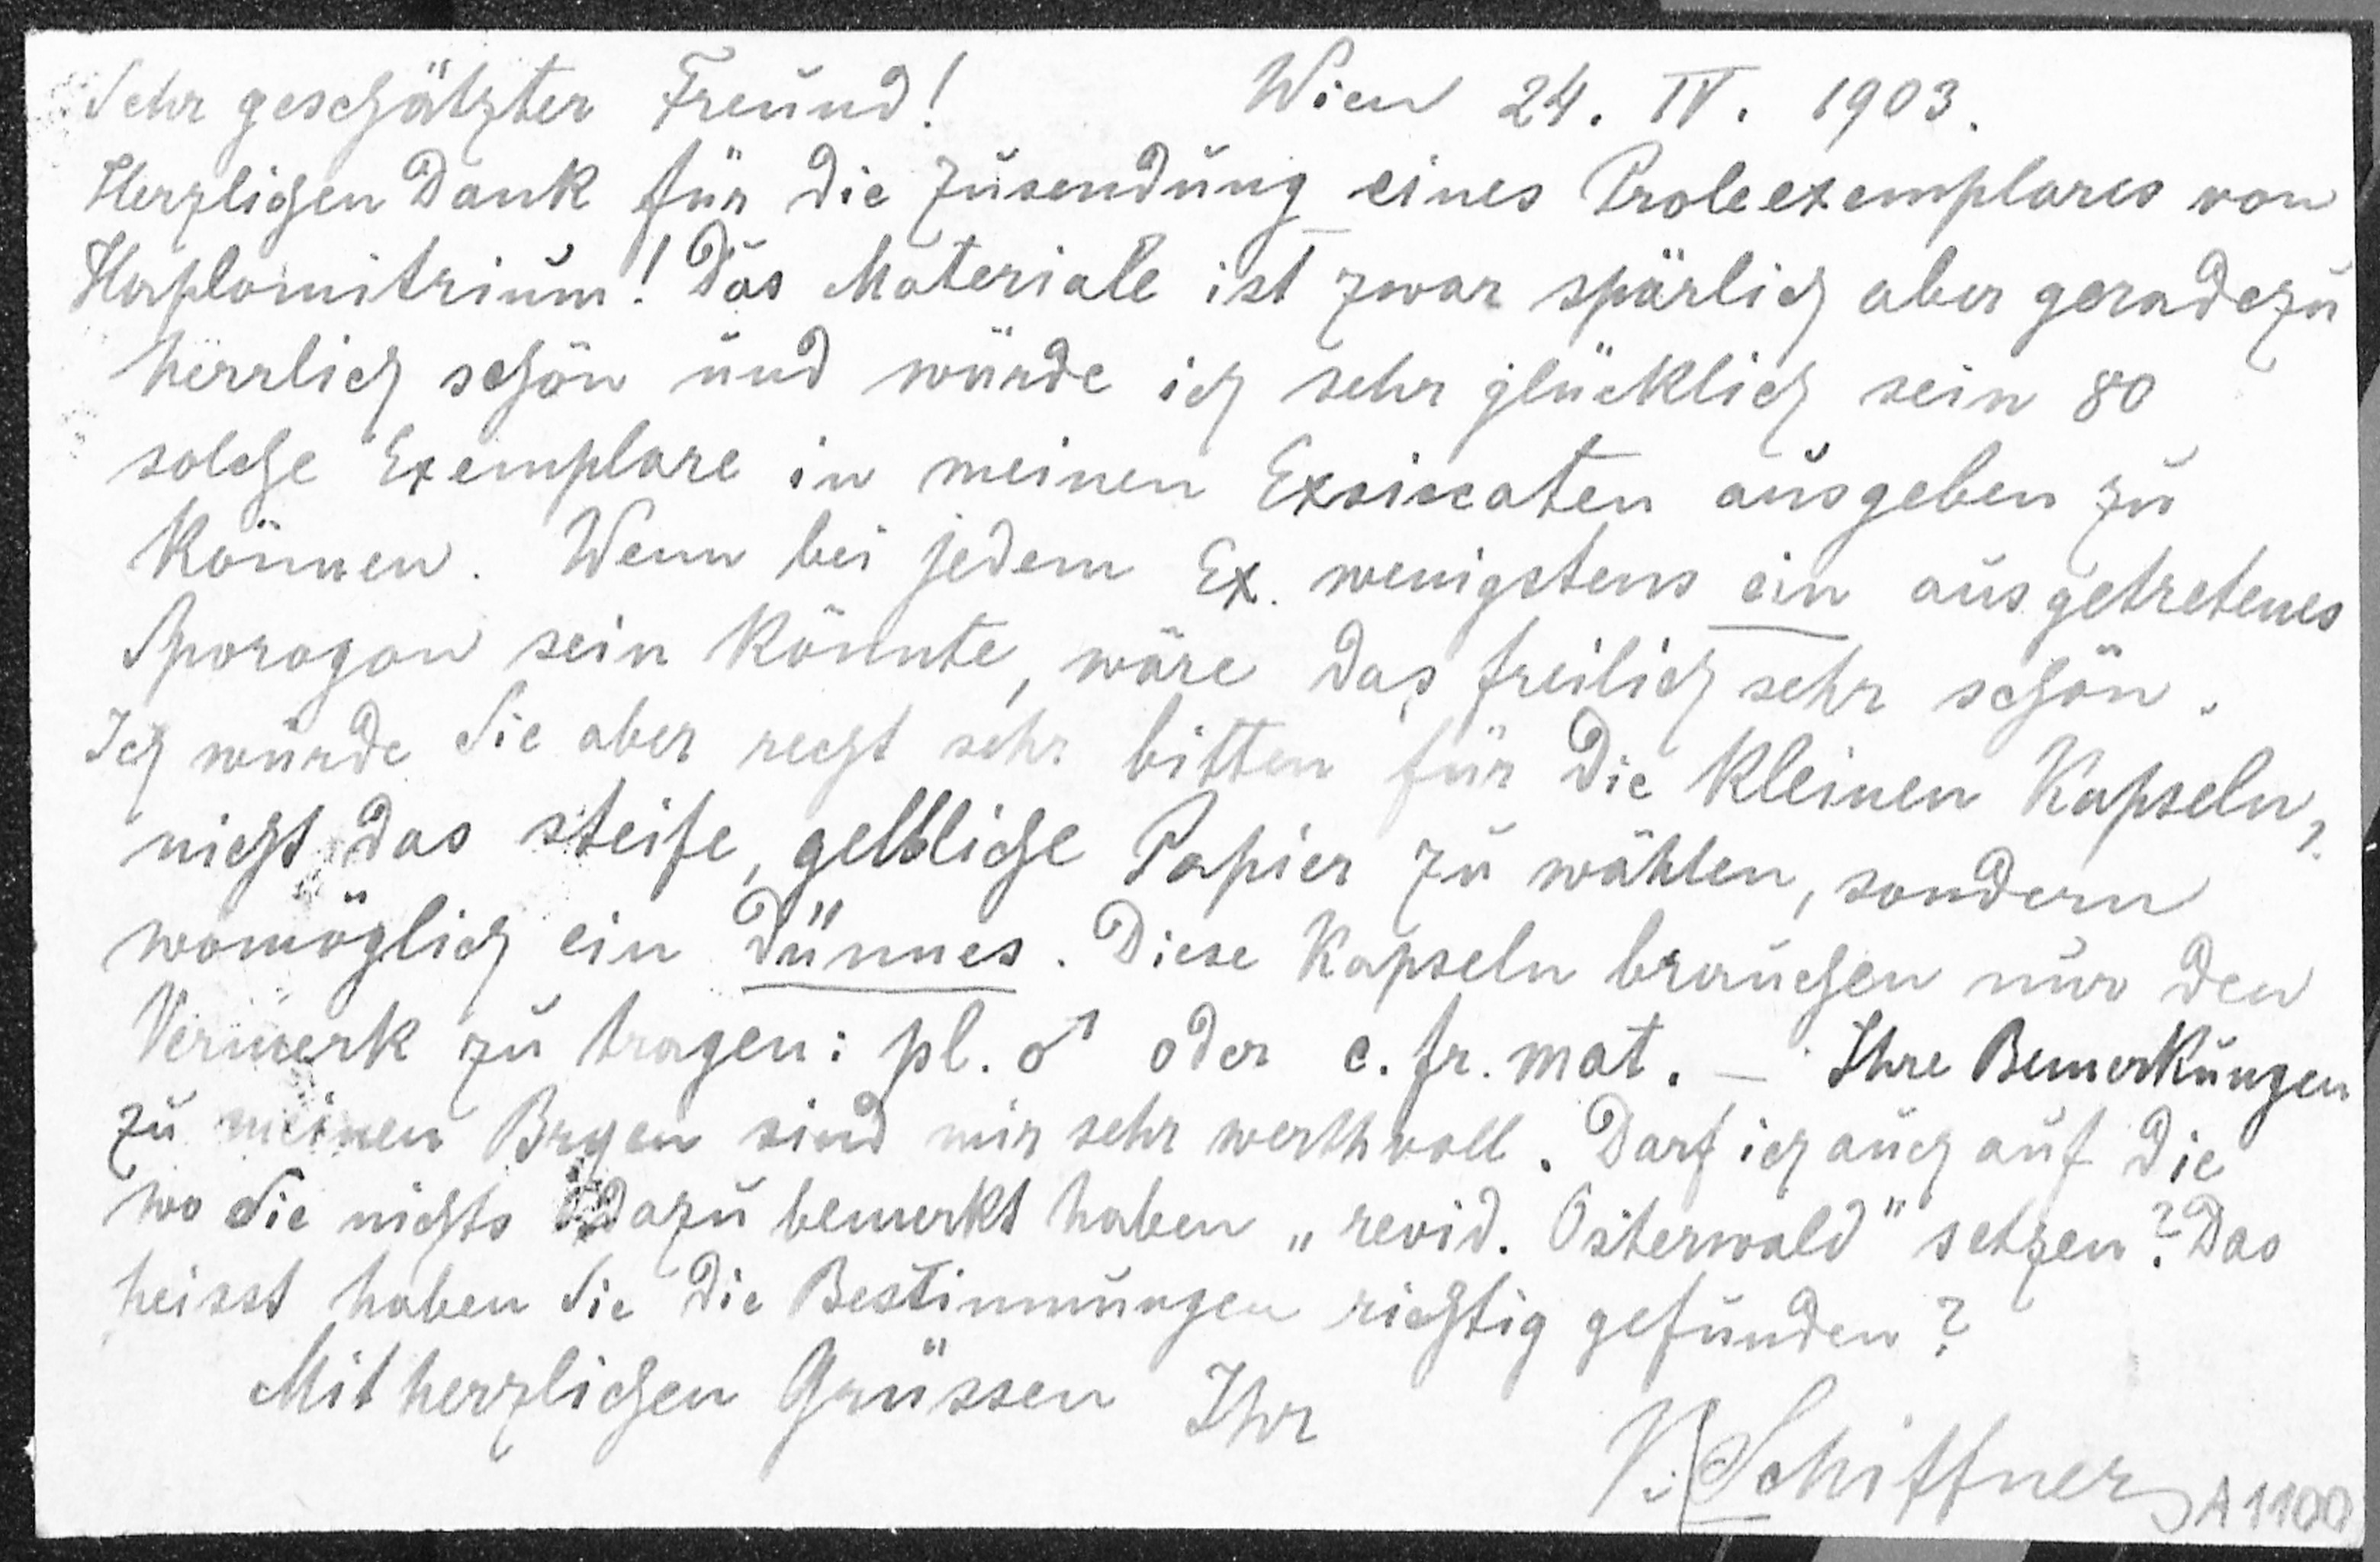 Sehr geschätzter Freund! Wien 24. IV. 1903.
Herzlichen Dank für die Zusendung eines Probeexemplares von
Haplomitrium! Das Materiale ist zwar spärlich aber geradezu
herrlich schön und würde ich sehr glücklich sein 80
solche Exemplare in meinen Exsiccaten ausgeben zu
können. Wenn bei jedem Ex. wenigstens ein ausgetretenes
Sporogon sein könnte, wäre das freilich sehr schön.
Ich würde Sie aber recht sehr bitten für die kleinen Kapseln,
nicht das steife, gelbliche Papier zu wählen, sondern
womöglich ein dünnes. Diese Kapseln brauchen nur den
Vermerk zu tragen: pl. ♂ oder c. fr. mat. — Ihre Bemerkungen
zu meinen Bryen sind mir sehr werthvoll. Darf ich auch auf die
wo Sie nichts dazu bemerkt haben „revid. Osterwald" setzen? Das
heisst haben Sie die Bestimmungen richtig gefunden?
Mit herzlichen Grüssen Ihr
V. Schiffner
A1100